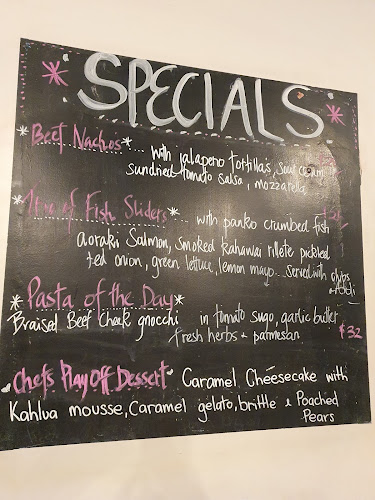 SPECIALS
*Beef Nachos* ... with jalapeno tortilla's, sour cream
sundried tomato salsa, mozzarella
of Fish Sliders* ... with panko crumbed fish
aoraki Salmon, smoked kahawai rillete pickled
red onion, green lettuce, lemon mayo.. served with chips
*Pasta of the Day*
Braised Beef Cheek gnocchi in tomato sugo, garlic butter
Fresh herbs + parmesan $32
Chefs Play Off Dessert Caramel Cheesecake with
Kahlua mousse, Caramel gelato, brittle & Poached
Pears